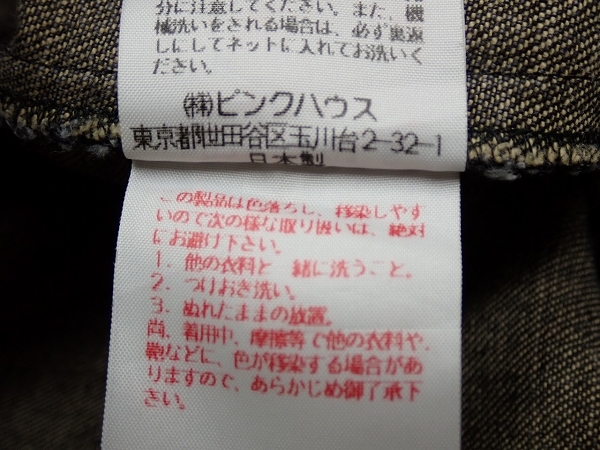 分に注意してください。また、機
械洗いをされる場合は、必ず裏返
しにしてネットに入れてお洗いく
ださい。
㈱ピンクハウス
東京都世田谷区玉川台2-32-1
日本製
この製品は色落ちし、移染しやす
いので次の様な取り扱いは、絶対
にお避け下さい。
1. 他の衣料と 緒に洗うこと。
2. つけおき洗い。
3. ぬれたままの放置。
尚、着用中、摩擦等で他の衣料や、
鞄などに、色が移染する場合があ
りますので、あらかじめ御了承下
さい。